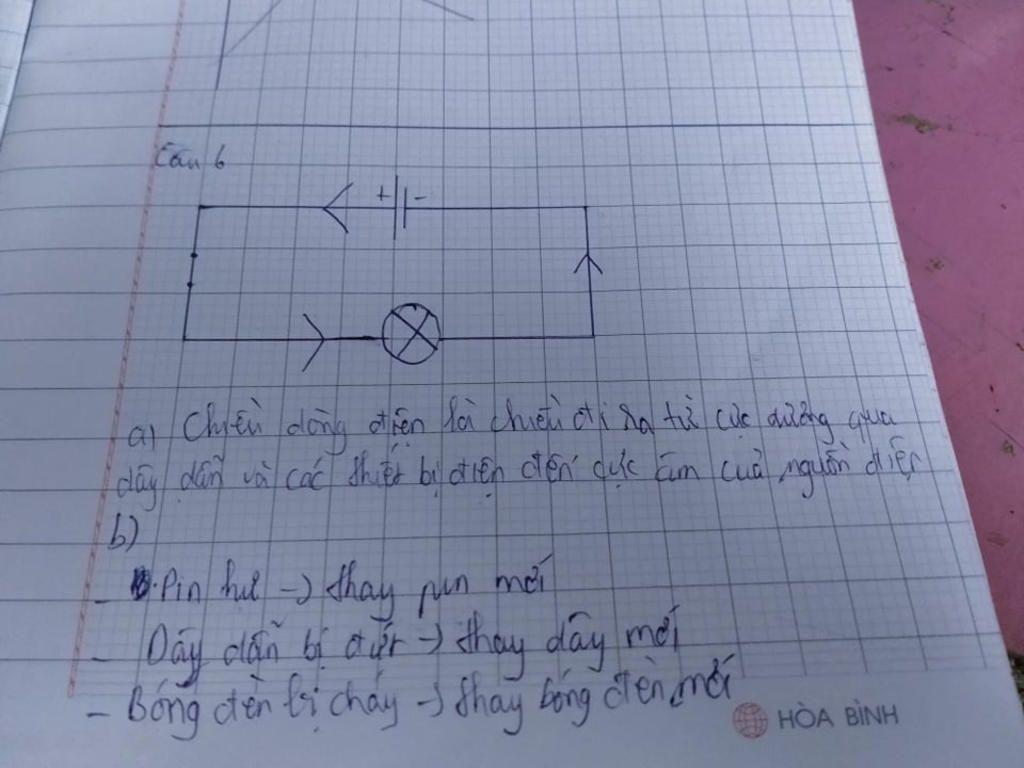 Câu 6
+ -
a) Chiều dòng điện là chiều đi ra từ cực dương qua
dây dẫn và các thiết bị điện đến cực âm của nguồn điện
b)
- Pin hư → thay pin mới
- Dây dẫn bị đứt → thay dây mới
- Bóng đèn bị cháy → thay bóng đèn mới
HÒA BÌNH